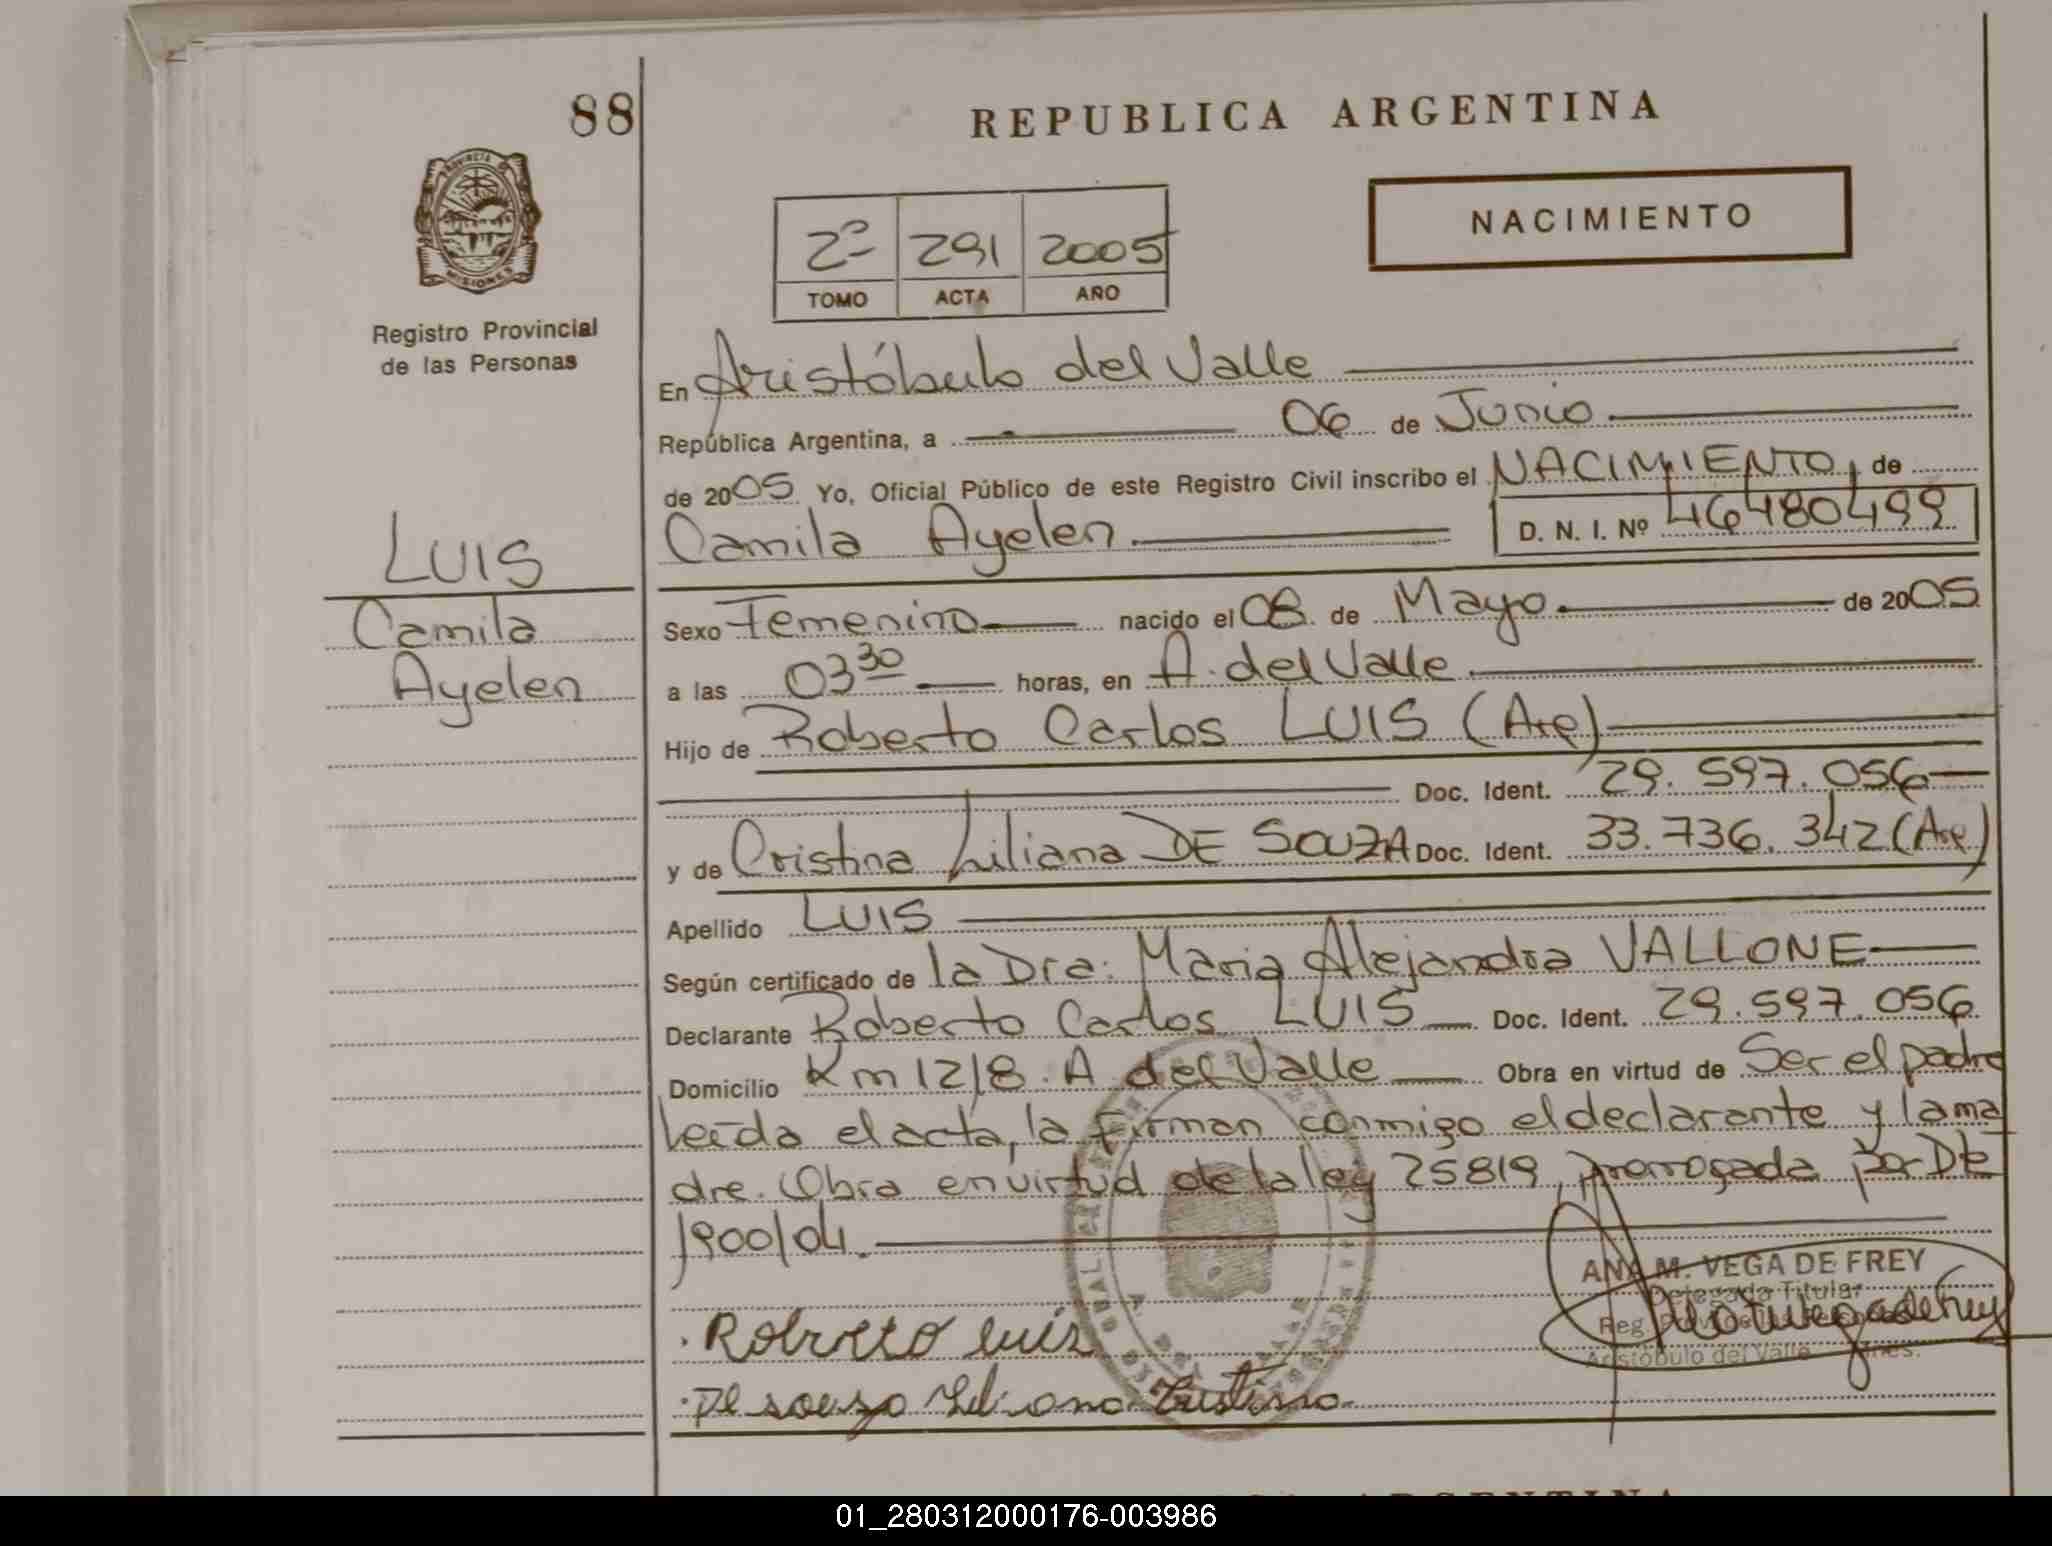 88
REPUBLICA ARGENTINA
PROVINCIA DE
MISIONES
NACIMIENTO
2º 291 2005
TOMO ACTA AÑO
Registro Provincial
de las Personas
En Aristóbulo del Valle
República Argentina, a 06 de Junio
de 2005 Yo, Oficial Público de este Registro Civil inscribo el NACIMIENTO, de
Camila Ayelen D. N. I. Nº 46480499
LUIS
Camila
Ayelen
Sexo Femenino nacido el 08 de Mayo de 2005
a las 03 30 horas, en A. del Valle
Hijo de Roberto Carlos LUIS (Arg)
Doc. Ident. 29.597.056
y de Cristina Liliana DE SOUZA Doc. Ident. 33.736.342 (Arg)
Apellido LUIS
Según certificado de la Dra. Maria Alejandra VALLONE
Declarante Roberto Carlos LUIS Doc. Ident. 29.597.056
Domicilio Km 12/8. A. del Valle Obra en virtud de Ser el padre
Leída el acta, la firman conmigo el declarante y la ma
dre. Obra en virtud de la ley 25819, prorrogada por Dto
1900/04.
ANA M. VEGA DE FREY
Delegada Titular
Reg.
Aristóbulo del Valle
Roberto Luis
De souza Liliana Cristina
REPUBLICA ARGENTINA
01_280312000176-003986